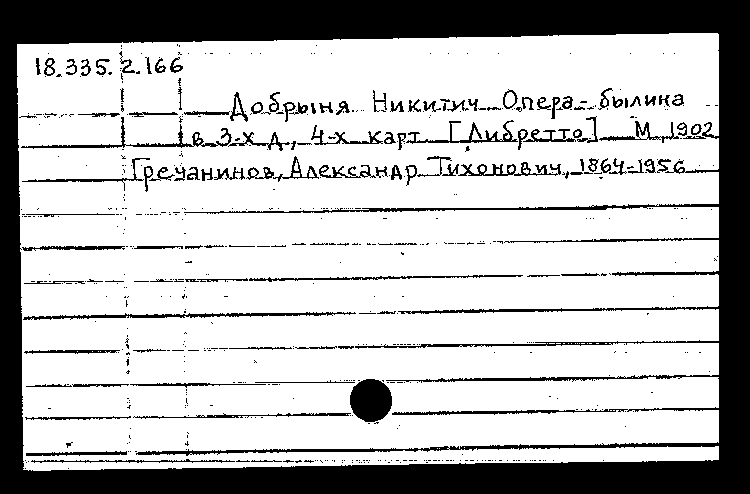 18.335.2.166
Добрыня Никитич Опера-былина
в 3-х д., 4-х карт. [Либретто] М., 1902
Гречанинов, Александр Тихонович, 1864-1956